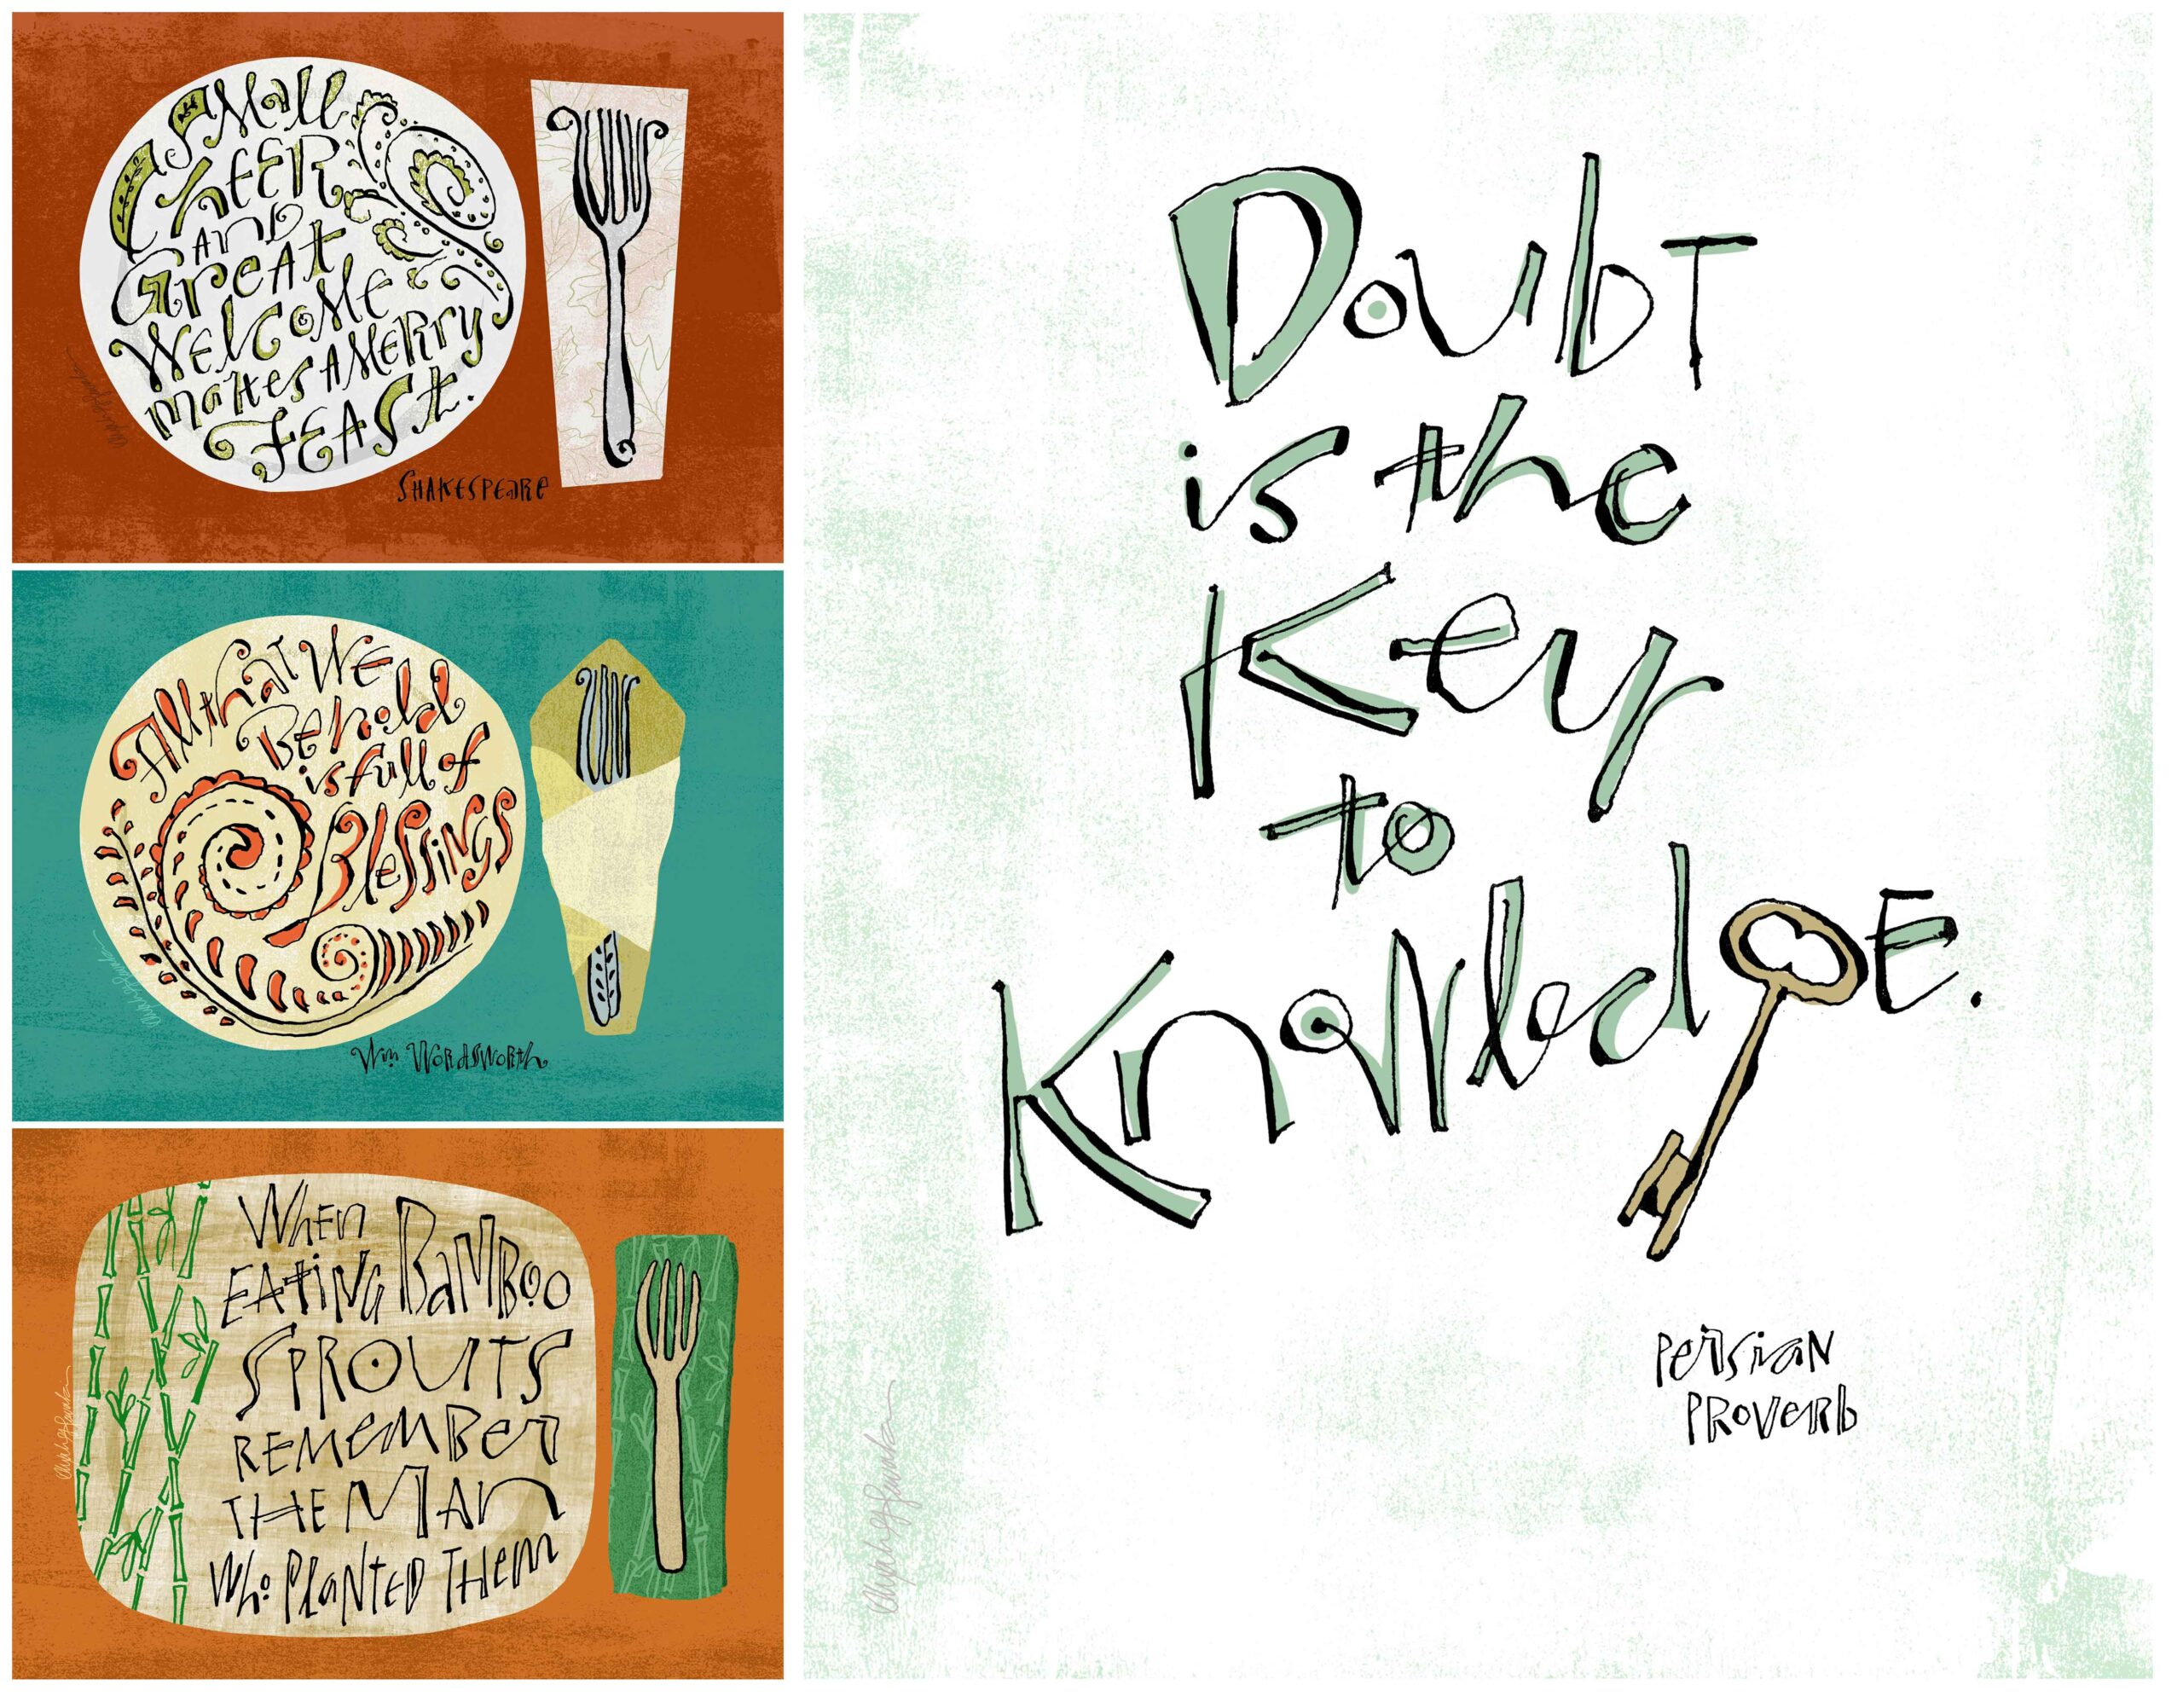 Small
Cheer
and
Great
Welcome
makes a Merry
Feast.
Shakespeare
All that We
Behold
is full of
Blessings
Wm. Wordsworth
When
Eating Bamboo
Sprouts
Remember
The Man
Who Planted Them
Doubt
is the
Key
to
Knowledge.
Persian
Proverb